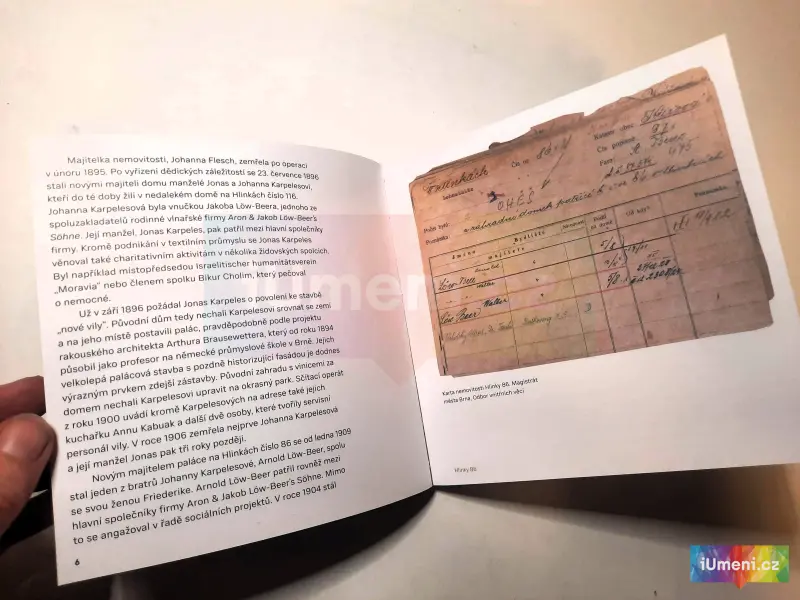 Majitelka nemovitosti, Johanna Flesch, zemřela po operaci
v únoru 1895. Po vyřízení dědických záležitostí se 23. července 1896
stali novými majiteli domu manželé Jonas a Johanna Karpelesovi,
kteří do té doby žili v nedalekém domě na Hlinkách číslo 116.
Johanna Karpelesová byla vnučkou Jakoba Löw-Beera, jednoho ze
spoluzakladatelů rodinné vlnařské firmy Aron & Jakob Löw-Beer's
Söhne. Její manžel, Jonas Karpeles, pak patřil mezi hlavní společníky
firmy. Kromě podnikání v textilním průmyslu se Jonas Karpeles
věnoval také charitativním aktivitám v několika židovských spolcích.
Byl například místopředsedou Israelitischer humanitätsverein
„Moravia" nebo členem spolku Bikur Cholim, který pečoval
o nemocné.
Už v září 1896 požádal Jonas Karpeles o povolení ke stavbě
„nové vily". Původní dům tedy nechali Karpelesovi srovnat se zemí
a na jeho místě postavili palác, pravděpodobně podle projektu
rakouského architekta Arthura Brausewettera, který od roku 1894
působil jako profesor na německé průmyslové škole v Brně. Jejich
velkolepá palácová stavba s pozdně historizující fasádou je dodnes
výrazným prvkem zdejší zástavby. Původní zahradu s vinicemi za
domem nechali Karpelesovi upravit na okrasný park. Sčítací operát
z roku 1900 uvádí kromě Karpelesových na adrese také jejich
kuchařku Annu Kabuak a další dvě osoby, které tvořily servisní
personál vily. V roce 1906 zemřela nejprve Johanna Karpelesová
a její manžel Jonas pak tři roky později.
Novým majitelem paláce na Hlinkách číslo 86 se od ledna 1909
stal jeden z bratrů Johanny Karpelesové, Arnold Löw-Beer, spolu
se svou ženou Friederike. Arnold Löw-Beer patřil rovněž mezi
hlavní společníky firmy Aron & Jakob Löw-Beer's Söhne. Mimo
to se angažoval v řadě sociálních projektů. V roce 1904 stál
6
Čís. or.
Jméno majitele
Bydliště
Poznámka
Löw Beer
Löw Beer Walter
Karta nemovitosti Hlinky 86. Magistrát
města Brna, Odbor vnitřních věcí
Hlinky 86
iUmeni.cz
iUmeni.cz